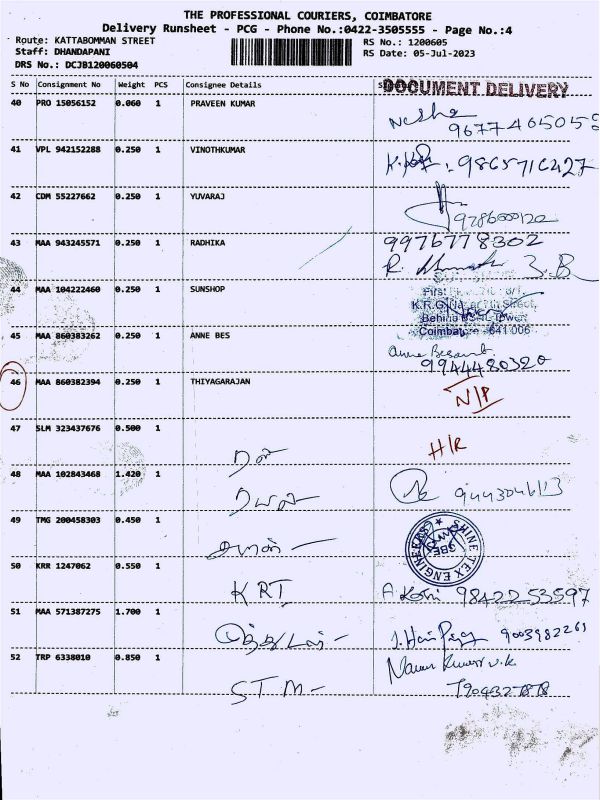 THE PROFESSIONAL COURIERS, COIMBATORE
Delivery Runsheet - PCG - Phone No.:0422-3505555 - Page No.:4
Route: KATTABOMMAN STREET
Staff: DHANDAPANI
DRS No.: DCJB120060504
RS No.: 1200605
RS Date: 05-Jul-2023
S No Consignment No Weight PCS Consignee Details
DOCUMENT DELIVERY
40 PRO 15056152 0.060 1 PRAVEEN KUMAR
41 VPL 942152288 0.250 1 VINOTHKUMAR
9865716427
42 CDM 55227662 0.250 1 YUVARAJ
9786000120
43 MAA 943245571 0.250 1 RADHIKA 9976778302
44 MAA 104222460 0.250 1 SUNSHOP
Coimbatore - 641 006
45 MAA 860383262 0.250 1 ANNE BES
9944480320
46 MAA 860382394 0.250 1 THIYAGARAJAN
N/P
47 SLM 323437676 0.500 1
H/R
48 MAA 102843468 1.420 1
9443046113
49 TMG 200458303 0.450 1
SHINE TEX ENGINEERS
50 KRR 1247062 0.550 1
KRT 9842253597
51 MAA 571387275 1.700 1
9003982261
52 TRP 6338010 0.850 1
STM - 7904327878